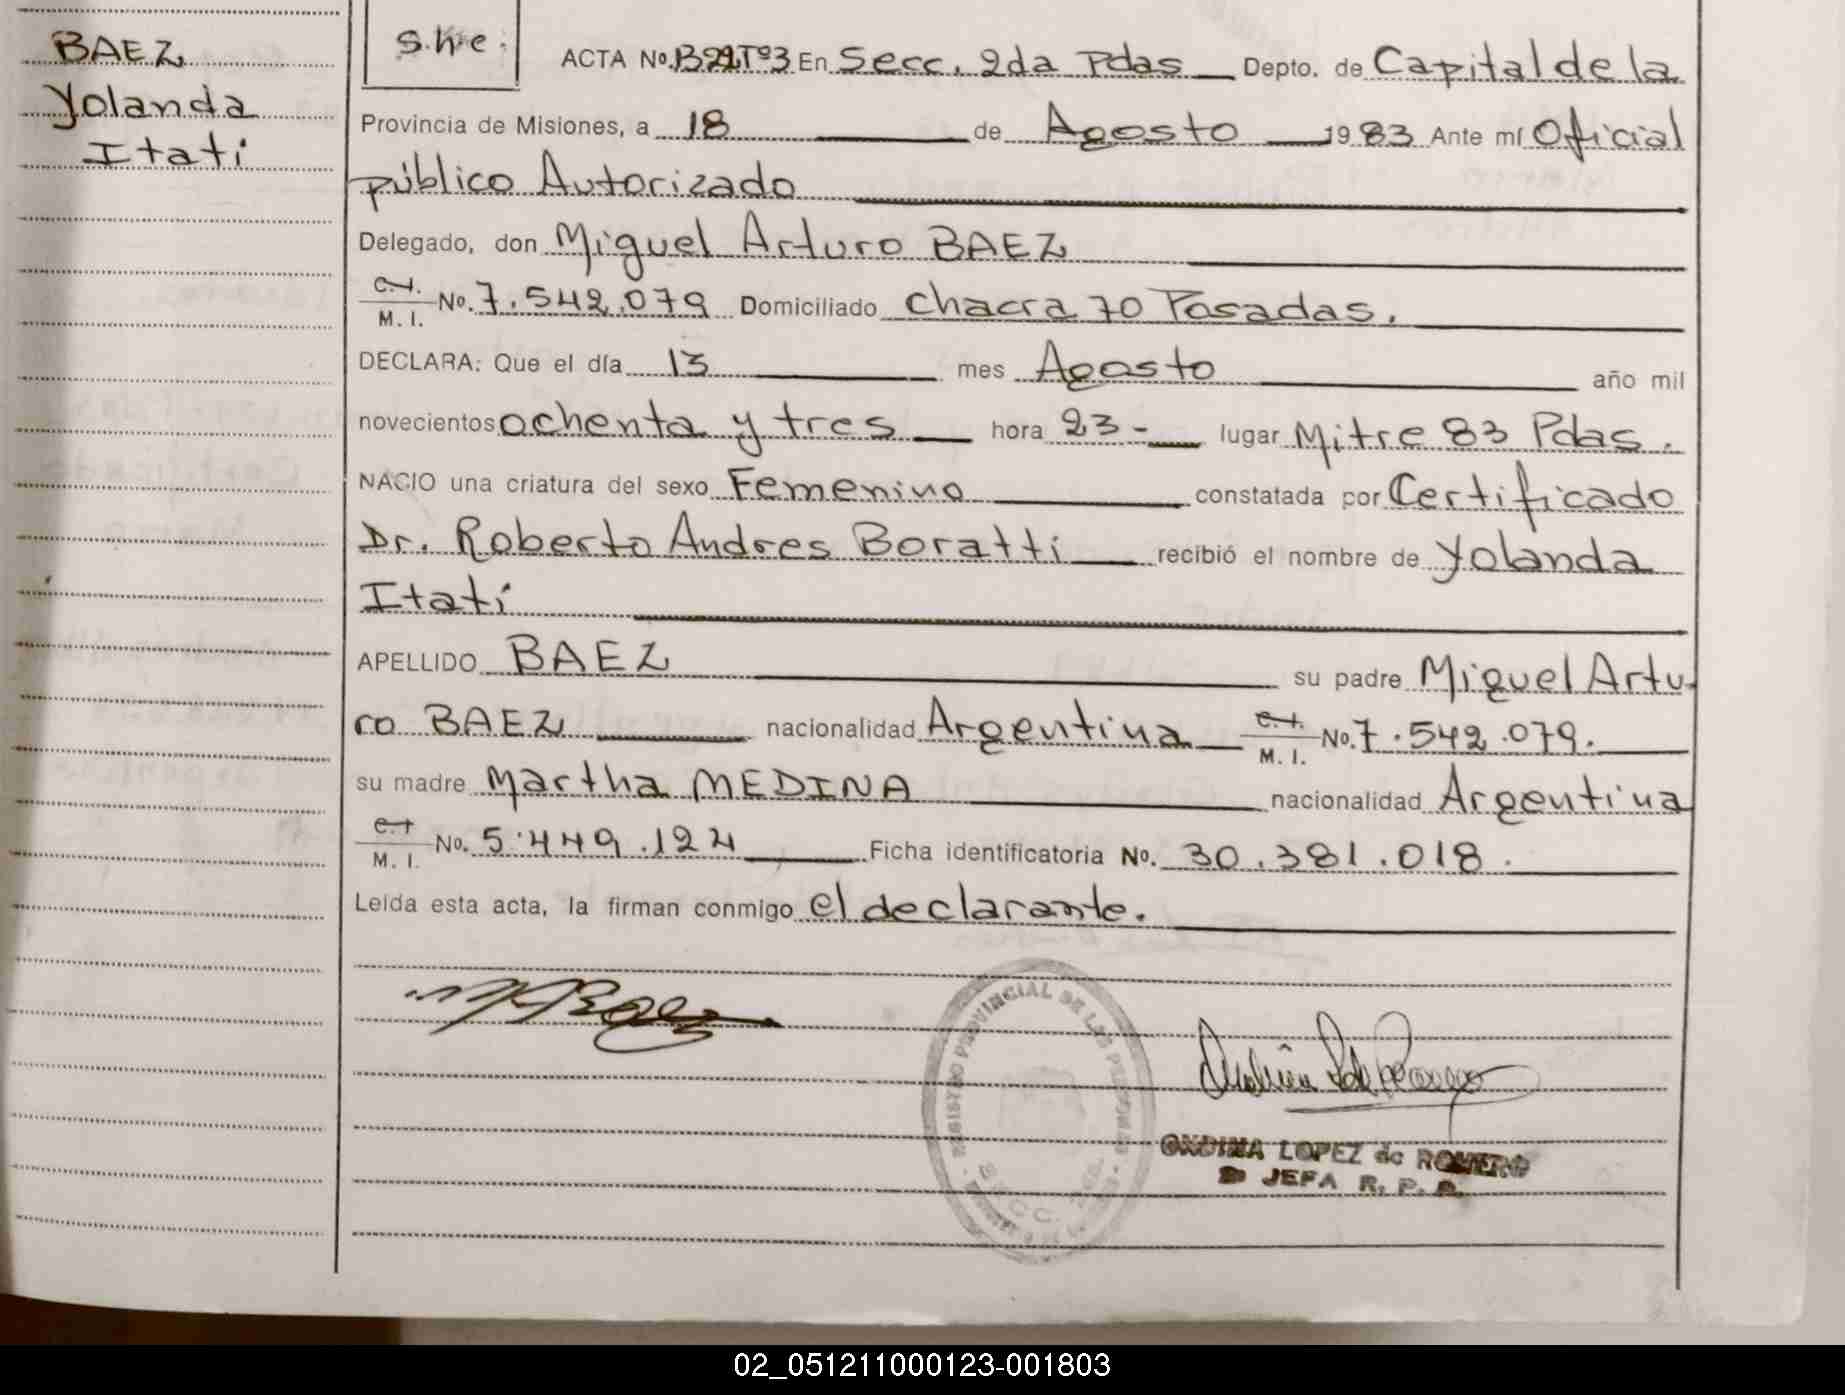 BAEZ
Yolanda
Itatí
s.h.c.
ACTA No. Tº3 En Secc. 2da Pdas Depto. de Capital de la
Provincia de Misiones, a 18 de Agosto 1983 Ante mí Oficial
público Autorizado
Delegado, don Miguel Arturo BAEZ
C.I.
M. I. No. 7.542.079 Domiciliado Chacra 70 Posadas.
DECLARA: Que el día 13 mes Agosto año mil
novecientos ochenta y tres hora 23- lugar Mitre 83 Pdas.
NACIO una criatura del sexo Femenino constatada por Certificado
Dr. Roberto Andres Boratti recibió el nombre de Yolanda
Itatí
APELLIDO BAEZ su padre Miguel Artu-
ro BAEZ nacionalidad Argentina C.I. M. I. No. 7.542.079.
su madre Martha MEDINA nacionalidad Argentina
C.I. M. I. No. 5.449.124 Ficha identificatoria No. 30.381.018.
Leída esta acta, la firman conmigo el declarante.
REGISTRO PROVINCIAL DE LAS PERSONAS
SECC.
ONDINA LOPEZ de ROMERO
JEFA R. P. P.
02_051211000123-001803